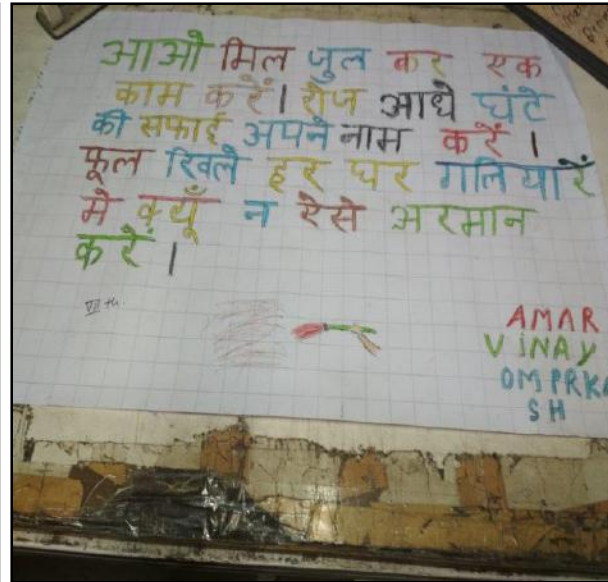 आओ मिल जुल कर एक
काम करें। रोज आधे घंटे
की सफाई अपने नाम करें ।
फूल खिले हर घर गलियारें
में क्यूँ न ऐसे अरमान
करें ।
VII th.
AMAR
VINAY
OMPRKA
SH